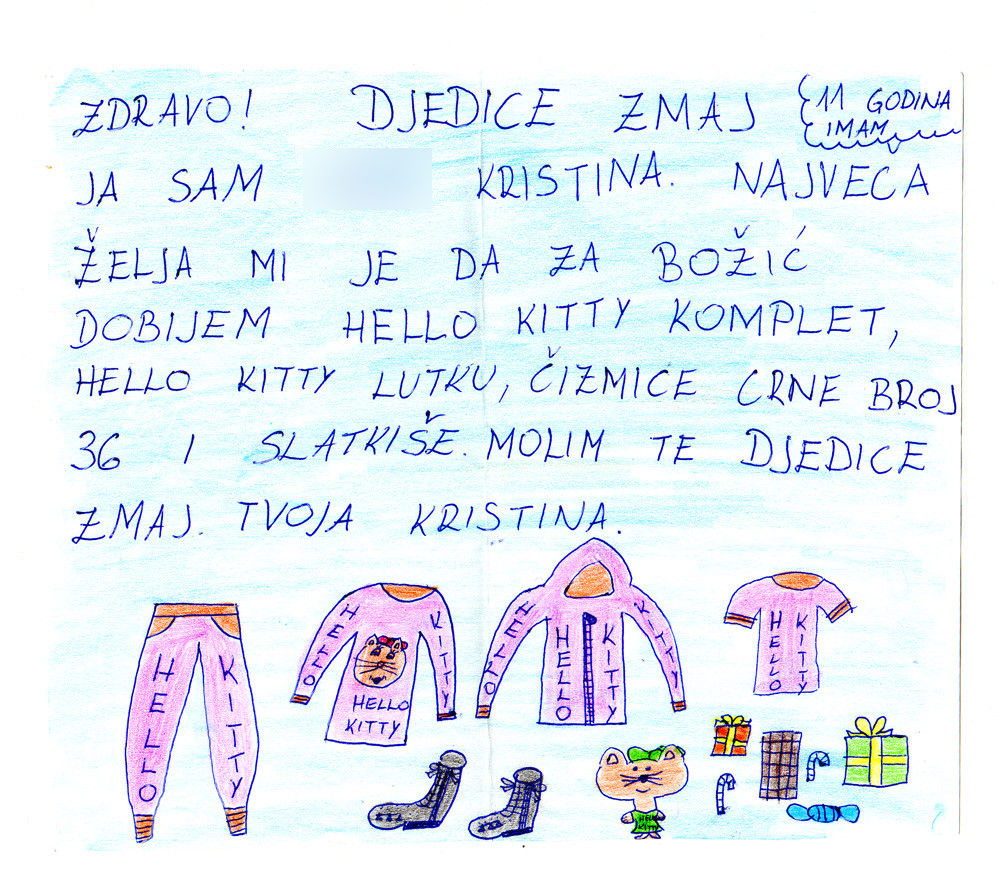 ZDRAVO! DJEDICE ZMAJ
11 GODINA
IMAM
JA SAM KRISTINA. NAJVEĆA
ŽELJA MI JE DA ZA BOŽIĆ
DOBIJEM HELLO KITTY KOMPLET,
HELLO KITTY LUTKU, ČIZMICE CRNE BROJ
36 I SLATKIŠE. MOLIM TE DJEDICE
ZMAJ. TVOJA KRISTINA.
HELLO KITTY
HELLO KITTY
HELLO
KITTY
HELLO HELLO KITTY KITTY
HELLO KITTY
HELLO
KITTY